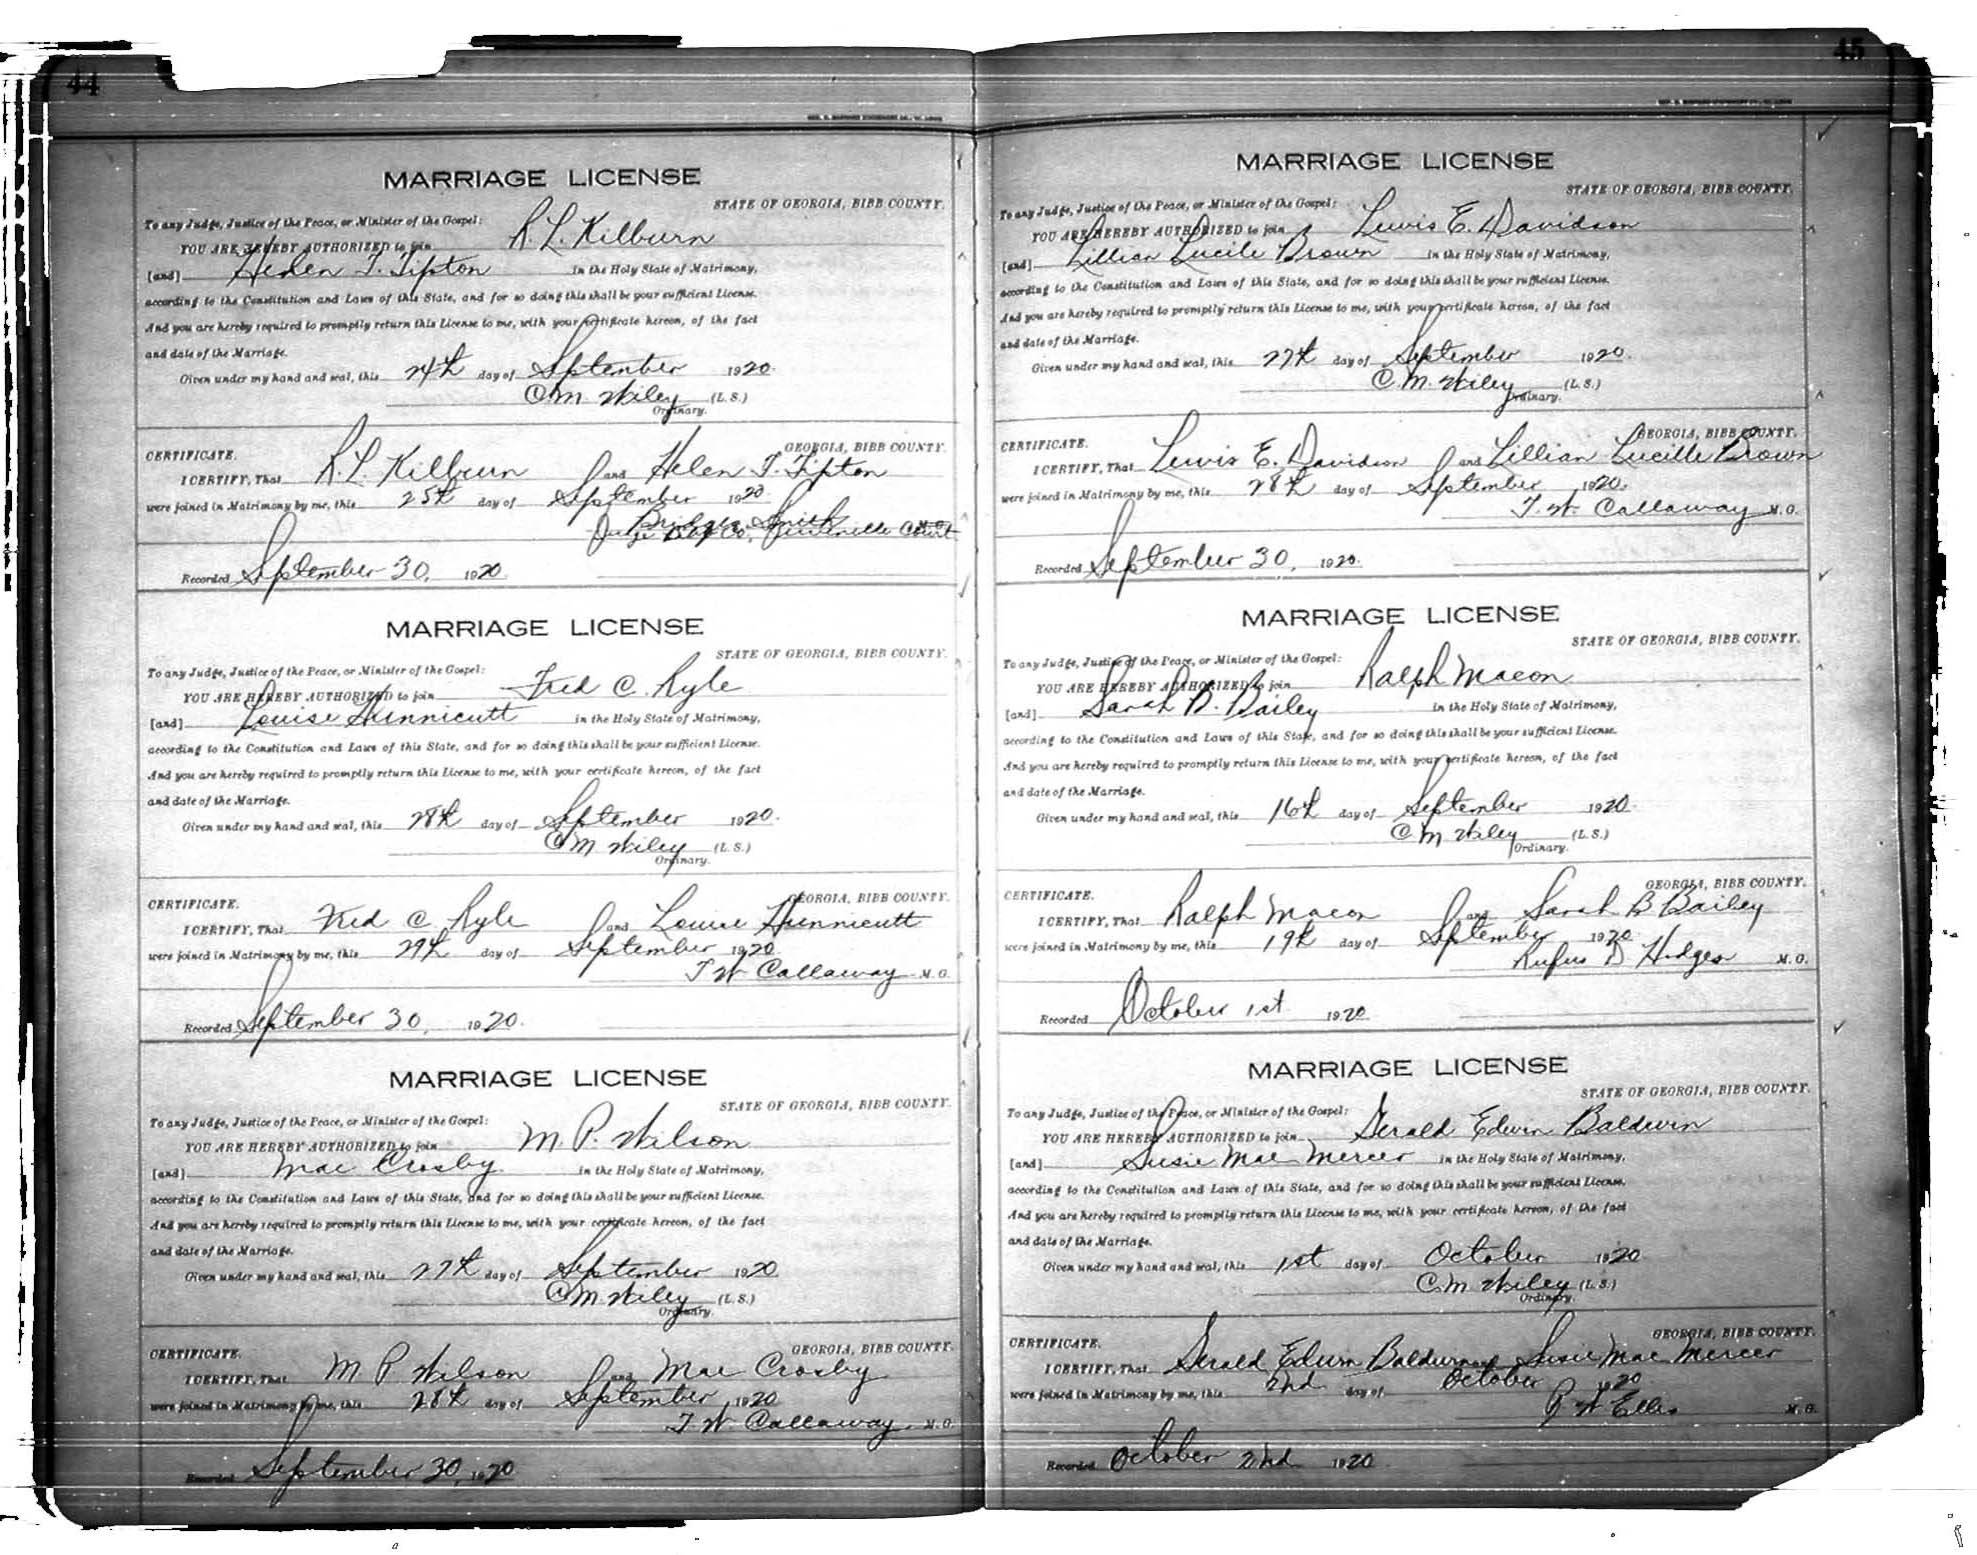 44
MARRIAGE LICENSE
STATE OF GEORGIA, BIBB COUNTY.
To any Judge, Justice of the Peace, or Minister of the Gospel:
YOU ARE HEREBY AUTHORIZED to join R. L. Kilburn
[and] Helen T. Tipton in the Holy State of Matrimony,
according to the Constitution and Laws of this State, and for so doing this shall be your sufficient License.
And you are hereby required to promptly return this License to me, with your certificate hereon, of the fact
and date of the Marriage.
Given under my hand and seal, this 24th day of September 1920.
C. M. Wiley (L. S.)
Ordinary.
CERTIFICATE. GEORGIA, BIBB COUNTY.
I CERTIFY, That R. L. Kilburn and Helen T. Tipton
were joined in Matrimony by me, this 25th day of September 1920.
Bridges Smith
Judge Bibb Co. Juvenile Court
Recorded September 30, 1920.
MARRIAGE LICENSE
STATE OF GEORGIA, BIBB COUNTY.
To any Judge, Justice of the Peace, or Minister of the Gospel:
YOU ARE HEREBY AUTHORIZED to join Fred C. Ryle
[and] Louise Hunnicutt in the Holy State of Matrimony,
according to the Constitution and Laws of this State, and for so doing this shall be your sufficient License.
And you are hereby required to promptly return this License to me, with your certificate hereon, of the fact
and date of the Marriage.
Given under my hand and seal, this 28th day of September 1920.
C M Wiley (L. S.)
Ordinary.
CERTIFICATE. GEORGIA, BIBB COUNTY.
I CERTIFY, That Fred C. Ryle and Louise Hunnicutt
were joined in Matrimony by me, this 29th day of September 1920.
T W Callaway M. G.
Recorded September 30, 1920.
MARRIAGE LICENSE
STATE OF GEORGIA, BIBB COUNTY.
To any Judge, Justice of the Peace, or Minister of the Gospel:
YOU ARE HEREBY AUTHORIZED to join M. P. Wilson
[and] Mae Crosby in the Holy State of Matrimony,
according to the Constitution and Laws of this State, and for so doing this shall be your sufficient License.
And you are hereby required to promptly return this License to me, with your certificate hereon, of the fact
and date of the Marriage.
Given under my hand and seal, this 27th day of September 1920.
C M Wiley (L. S.)
Ordinary.
CERTIFICATE. GEORGIA, BIBB COUNTY.
I CERTIFY, That M P Wilson and Mae Crosby
were joined in Matrimony by me, this 28th day of September 1920
T W Callaway M. G.
Recorded September 30, 1920
45
MARRIAGE LICENSE
STATE OF GEORGIA, BIBB COUNTY.
To any Judge, Justice of the Peace, or Minister of the Gospel:
YOU ARE HEREBY AUTHORIZED to join Lewis E. Davidson
[and] Lillian Lucile Brown in the Holy State of Matrimony,
according to the Constitution and Laws of this State, and for so doing this shall be your sufficient License.
And you are hereby required to promptly return this License to me, with your certificate hereon, of the fact
and date of the Marriage.
Given under my hand and seal, this 27th day of September 1920.
C. M. Wiley (L. S.)
Ordinary.
CERTIFICATE. GEORGIA, BIBB COUNTY.
I CERTIFY, That Lewis E. Davidson and Lillian Lucille Brown
were joined in Matrimony by me, this 28th day of September 1920.
T. W. Callaway M. G.
Recorded September 30, 1920.
MARRIAGE LICENSE
STATE OF GEORGIA, BIBB COUNTY.
To any Judge, Justice of the Peace, or Minister of the Gospel:
YOU ARE HEREBY AUTHORIZED to join Ralph Macon
[and] Sarah B. Bailey in the Holy State of Matrimony,
according to the Constitution and Laws of this State, and for so doing this shall be your sufficient License.
And you are hereby required to promptly return this License to me, with your certificate hereon, of the fact
and date of the Marriage.
Given under my hand and seal, this 16th day of September 1920.
C M Wiley (L. S.)
Ordinary.
CERTIFICATE. GEORGIA, BIBB COUNTY.
I CERTIFY, That Ralph Macon and Sarah B Bailey
were joined in Matrimony by me, this 19th day of September 1920.
Rufus D Hodges M. G.
Recorded October 1st 1920
MARRIAGE LICENSE
STATE OF GEORGIA, BIBB COUNTY.
To any Judge, Justice of the Peace, or Minister of the Gospel:
YOU ARE HEREBY AUTHORIZED to join Gerald Edwin Baldwin
[and] Susie Mae Mercer in the Holy State of Matrimony,
according to the Constitution and Laws of this State, and for so doing this shall be your sufficient License.
And you are hereby required to promptly return this License to me, with your certificate hereon, of the fact
and date of the Marriage.
Given under my hand and seal, this 1st day of October 1920
C. M Wiley (L. S.)
Ordinary.
CERTIFICATE. GEORGIA, BIBB COUNTY.
I CERTIFY, That Gerald Edwin Baldwin and Susie Mae Mercer
were joined in Matrimony by me, this 2nd day of October 1920
R W Ellis M. G.
Recorded October 2nd 1920